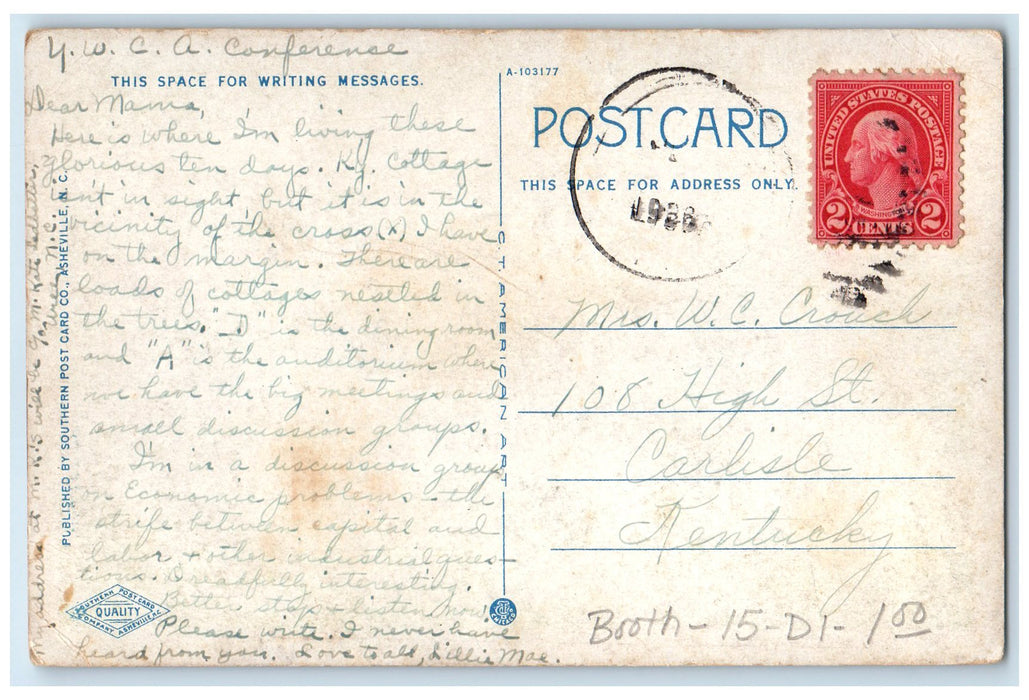 Y. W. C. A. Conference
THIS SPACE FOR WRITING MESSAGES.
Dear Mama,
Here is where I'm living these
glorious ten days. Ky. Cottage
isn't in sight but it is in the
vicinity of the cross (x) I have
on the margin. There are
loads of cottages nestled in
the trees. "D" is the dining room
and "A" is the auditorium where
we have the big meetings and
small discussion groups.
I'm in a discussion group
on Economic problems - the
strife between capital and
labor + other industrial ques-
tions. Dreadfully interesting.
Better stop + listen now.
Please write. I never have
heard from you. Love to all, Lillie Mae.
My address at M. K's will be c/o M. Kate
N.C.
PUBLISHED BY SOUTHERN POST CARD CO., ASHEVILLE, N. C.
SOUTHERN POST CARD
QUALITY
COMPANY ASHEVILLE N.C.
C. T. AMERICAN ART
A-103177
POST CARD
THIS SPACE FOR ADDRESS ONLY.
UNITED STATES POSTAGE
WASHINGTON
2 CENTS 2
Mrs. W. C. Crouch
108 High St.
Carlisle
Kentucky
Booth - 15 - D1 - 1 00